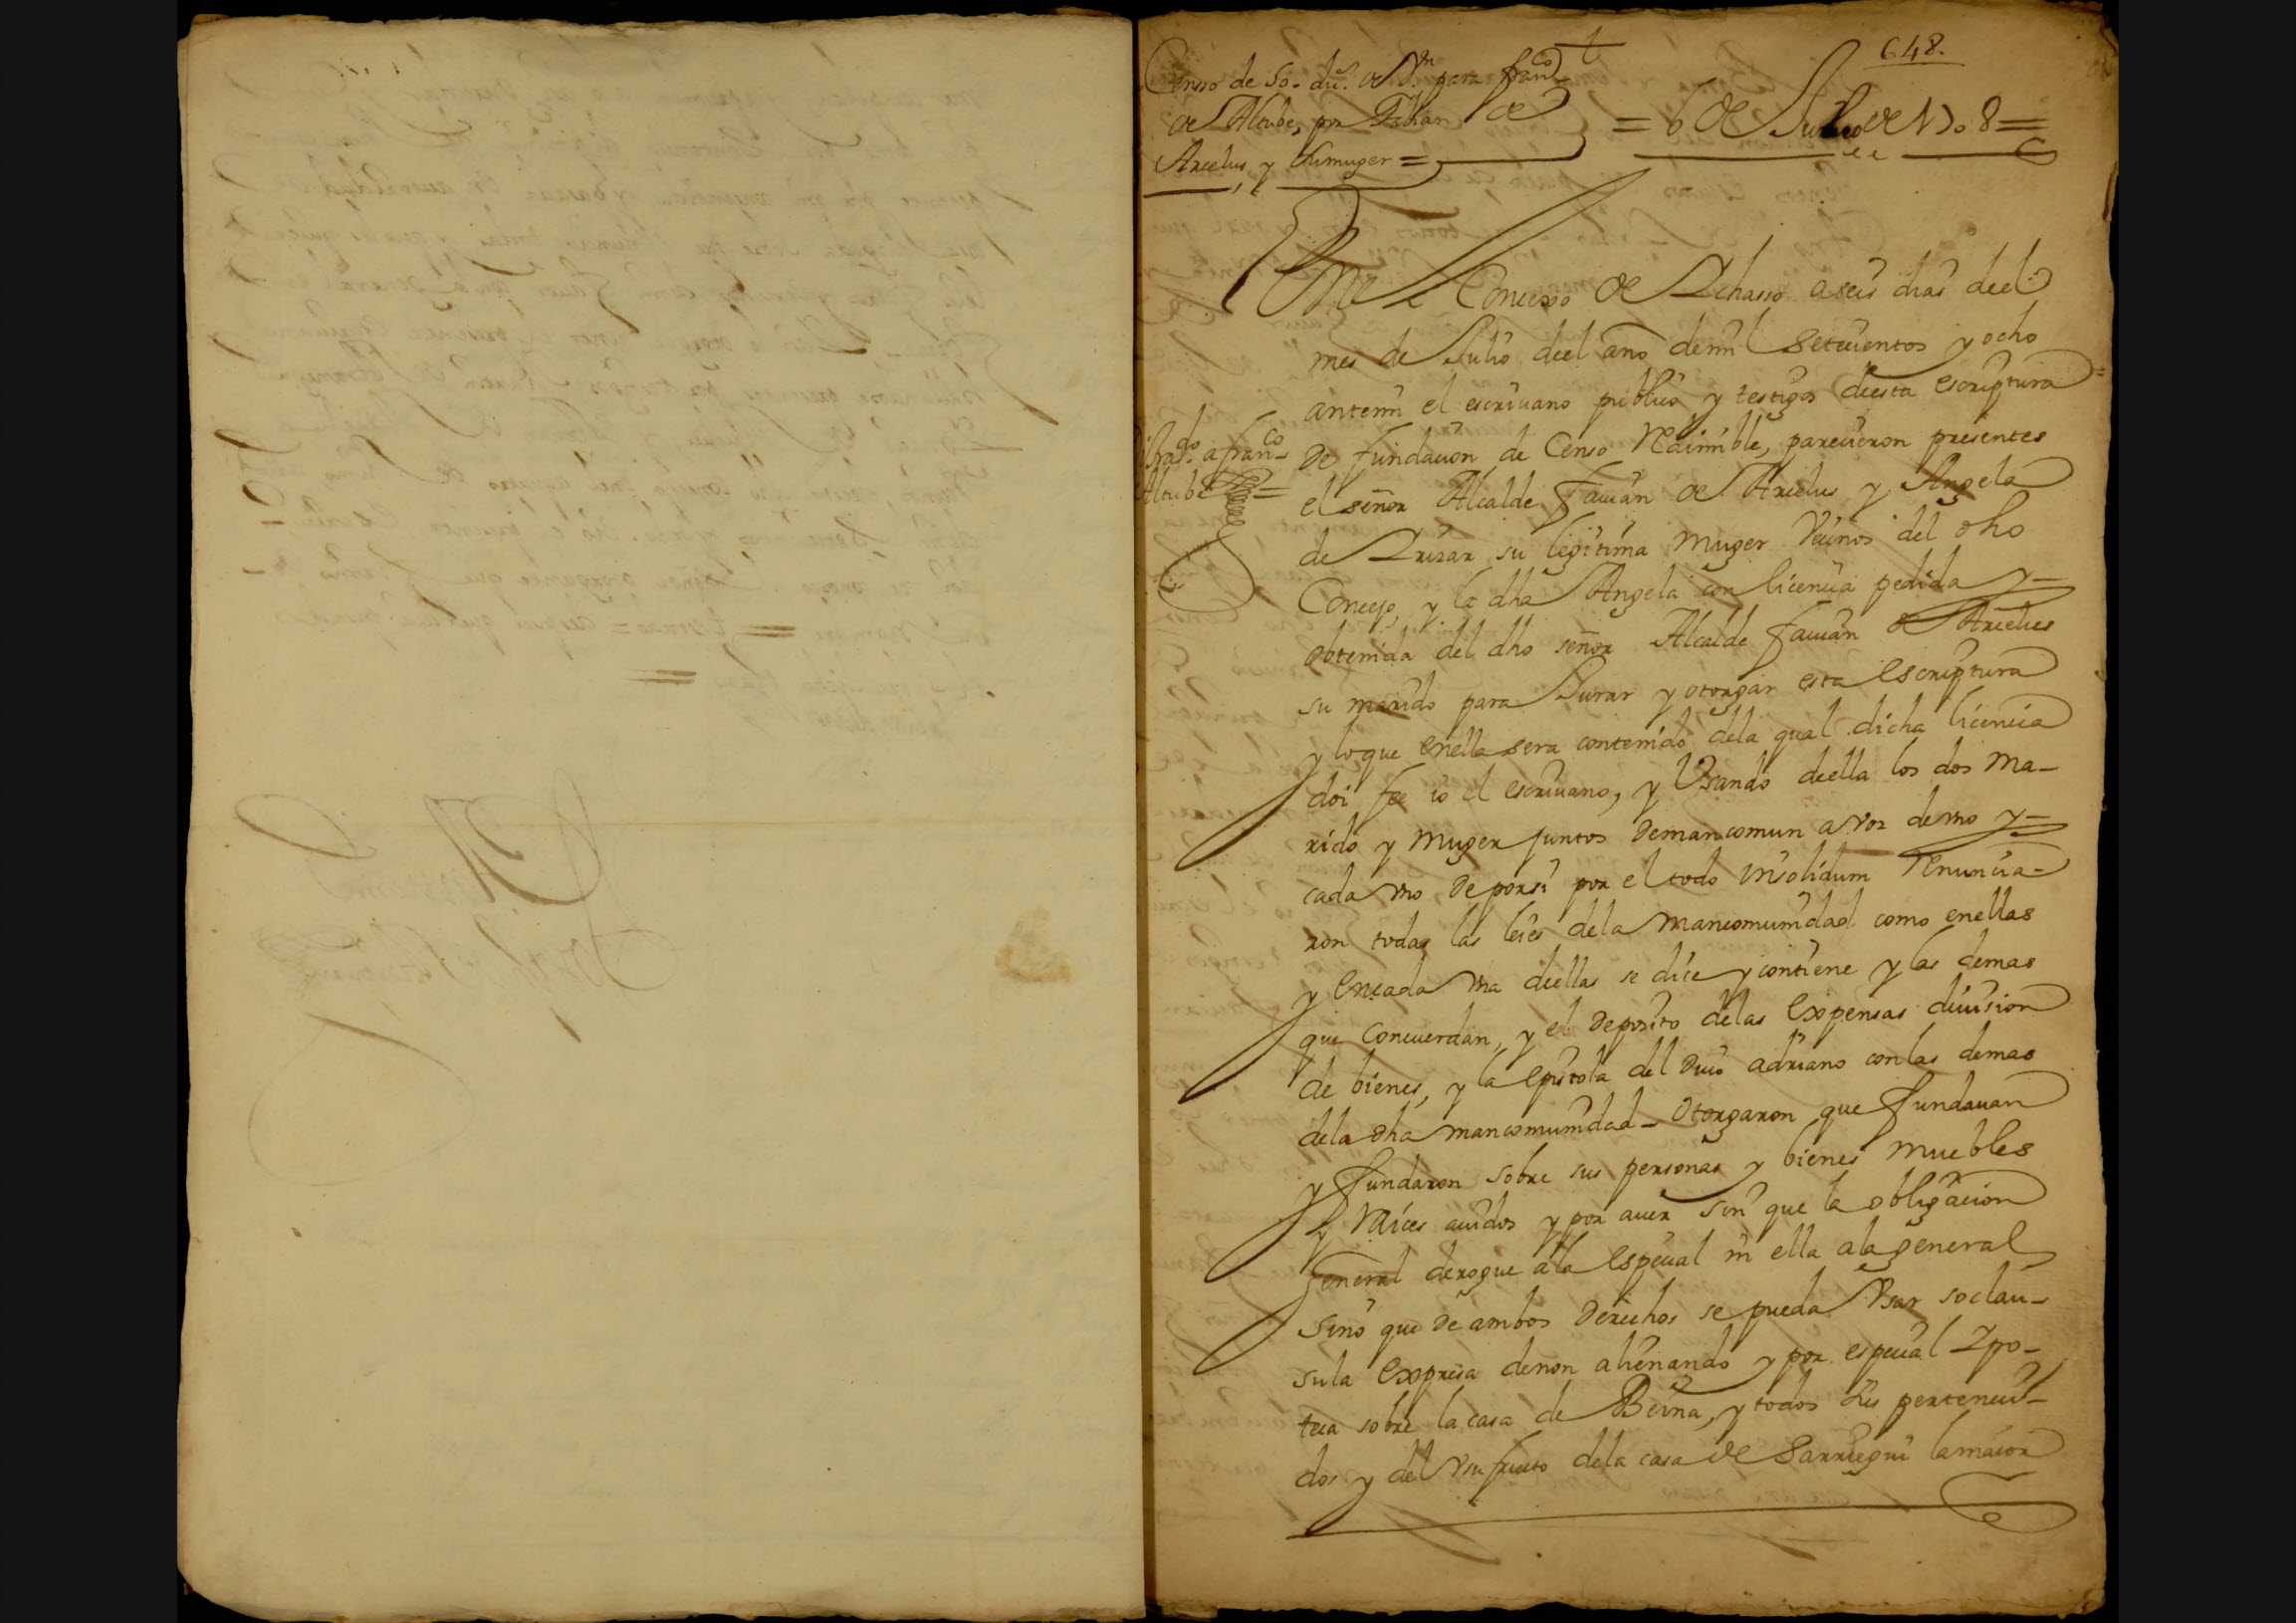 648.
Censo de 50. du.s de V.n para fran.co
de Altube, por Fabian de
Arcelus, y su muger =
= 6 de Julio de 1708 =
En el Concexo de Ichasso a seis dias deel
mes de Julio deel año de mil setecientos y ocho
antemi el escriuano publico y testigos deesta escriptura
de fundacion de Censo Redimible, parecieron presentes
el señor Alcalde Fauian de Arcelus y Angela
de Irizar su legitima muger Vecinos del dho
Concejo, y la dha Angela con licencia pedida y
obtenida del dho señor Alcalde Fauian de Arcelus
su marido para Jurar y otorgar esta escriptura
y loque enella sera contenido dela qual dicha licencia
doi fee io el escriuano, y Vsando deella los dos ma-
rido y muger juntos demancomun a voz de vno y
cada vno deporsi por el todo insolidum Renuncia-
ron todas las leies dela mancomunidad como enellas
y encada vna deellas se dice y contiene y las demas
que concuerdan, y el deposito delas expensas diuision
de bienes, y la epistola del Diuo adriano conlas demas
dela dha mancomunidad - Otorgaron que fundauan
y fundaron sobre sus personas y bienes muebles
y Raices auidos y por auer sin que la obligacion
general derogue ala especial ni ella ala general
sino que de ambos derechos se pueda Vsar so clau-
sula expresa denon alienando y por especial Ypo-
teca sobre la casa de Beina, y todos sus perteneci-
dos y del Vsufructo dela casa de Sarriegui lamaior
a fran.co
Altube =